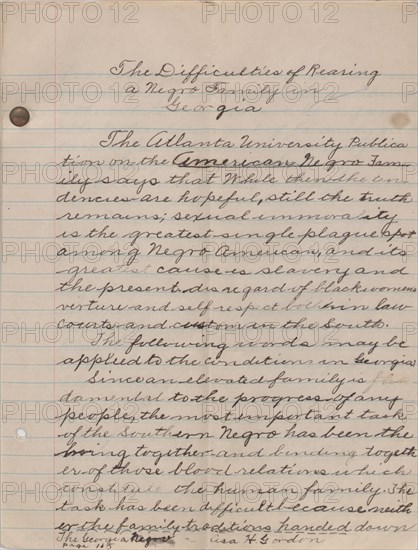 The Difficulties of Rearing
a Negro Family in
Georgia
The Atlanta University Publica
tion on the American Negro Fam-
ily says that While then the ten
dencies are hopeful, still the truth
remains; sexual immorality
is the greatest single plague spot
among Negro American, and its
greatest cause is slavery and
the present disregard of black womens
verture and self respect both in law
courts and custom in the South.
The following words may be
applied to the conditions in Georgia
Since an elevated family is
damental to the progress of any
people, the most important task
of the Southern Negro has been the
bring together and binding togeth
er of those blood relations which
constitute the human family. The
task has been difficult because neith
er the family traditions handed down
The Georgia Negro - Asa H Gordon
Page 115